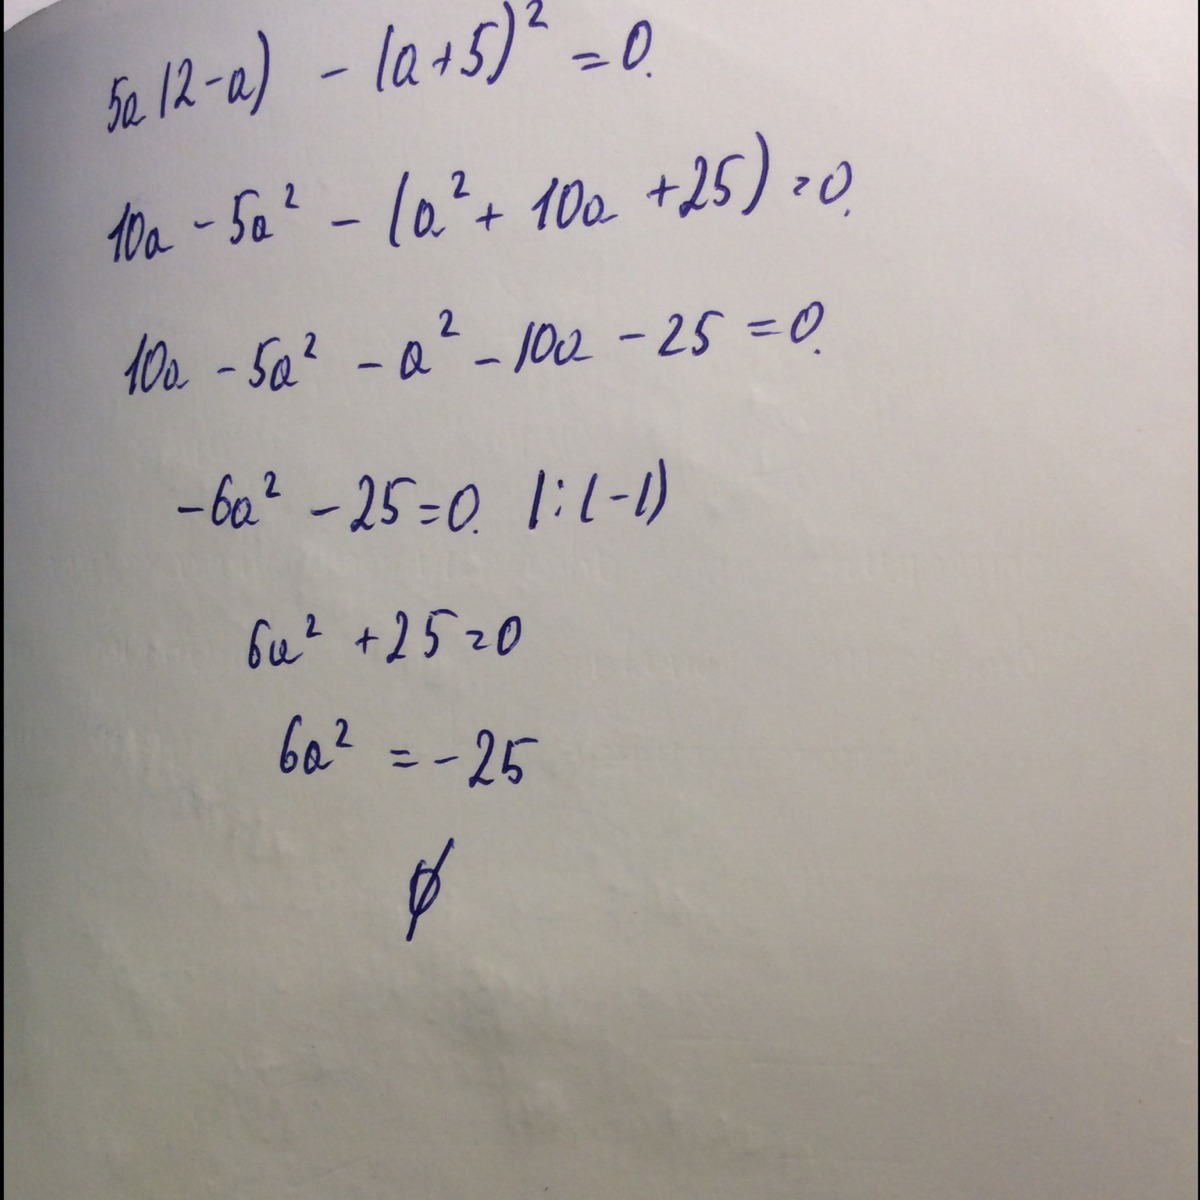 5a(2-a) - (a+5)² = 0.
10a - 5a² - (a² + 10a + 25) = 0.
10a - 5a² - a² - 10a - 25 = 0.
-6a² - 25 = 0. |:(-1)
6a² + 25 = 0
6a² = -25
∅